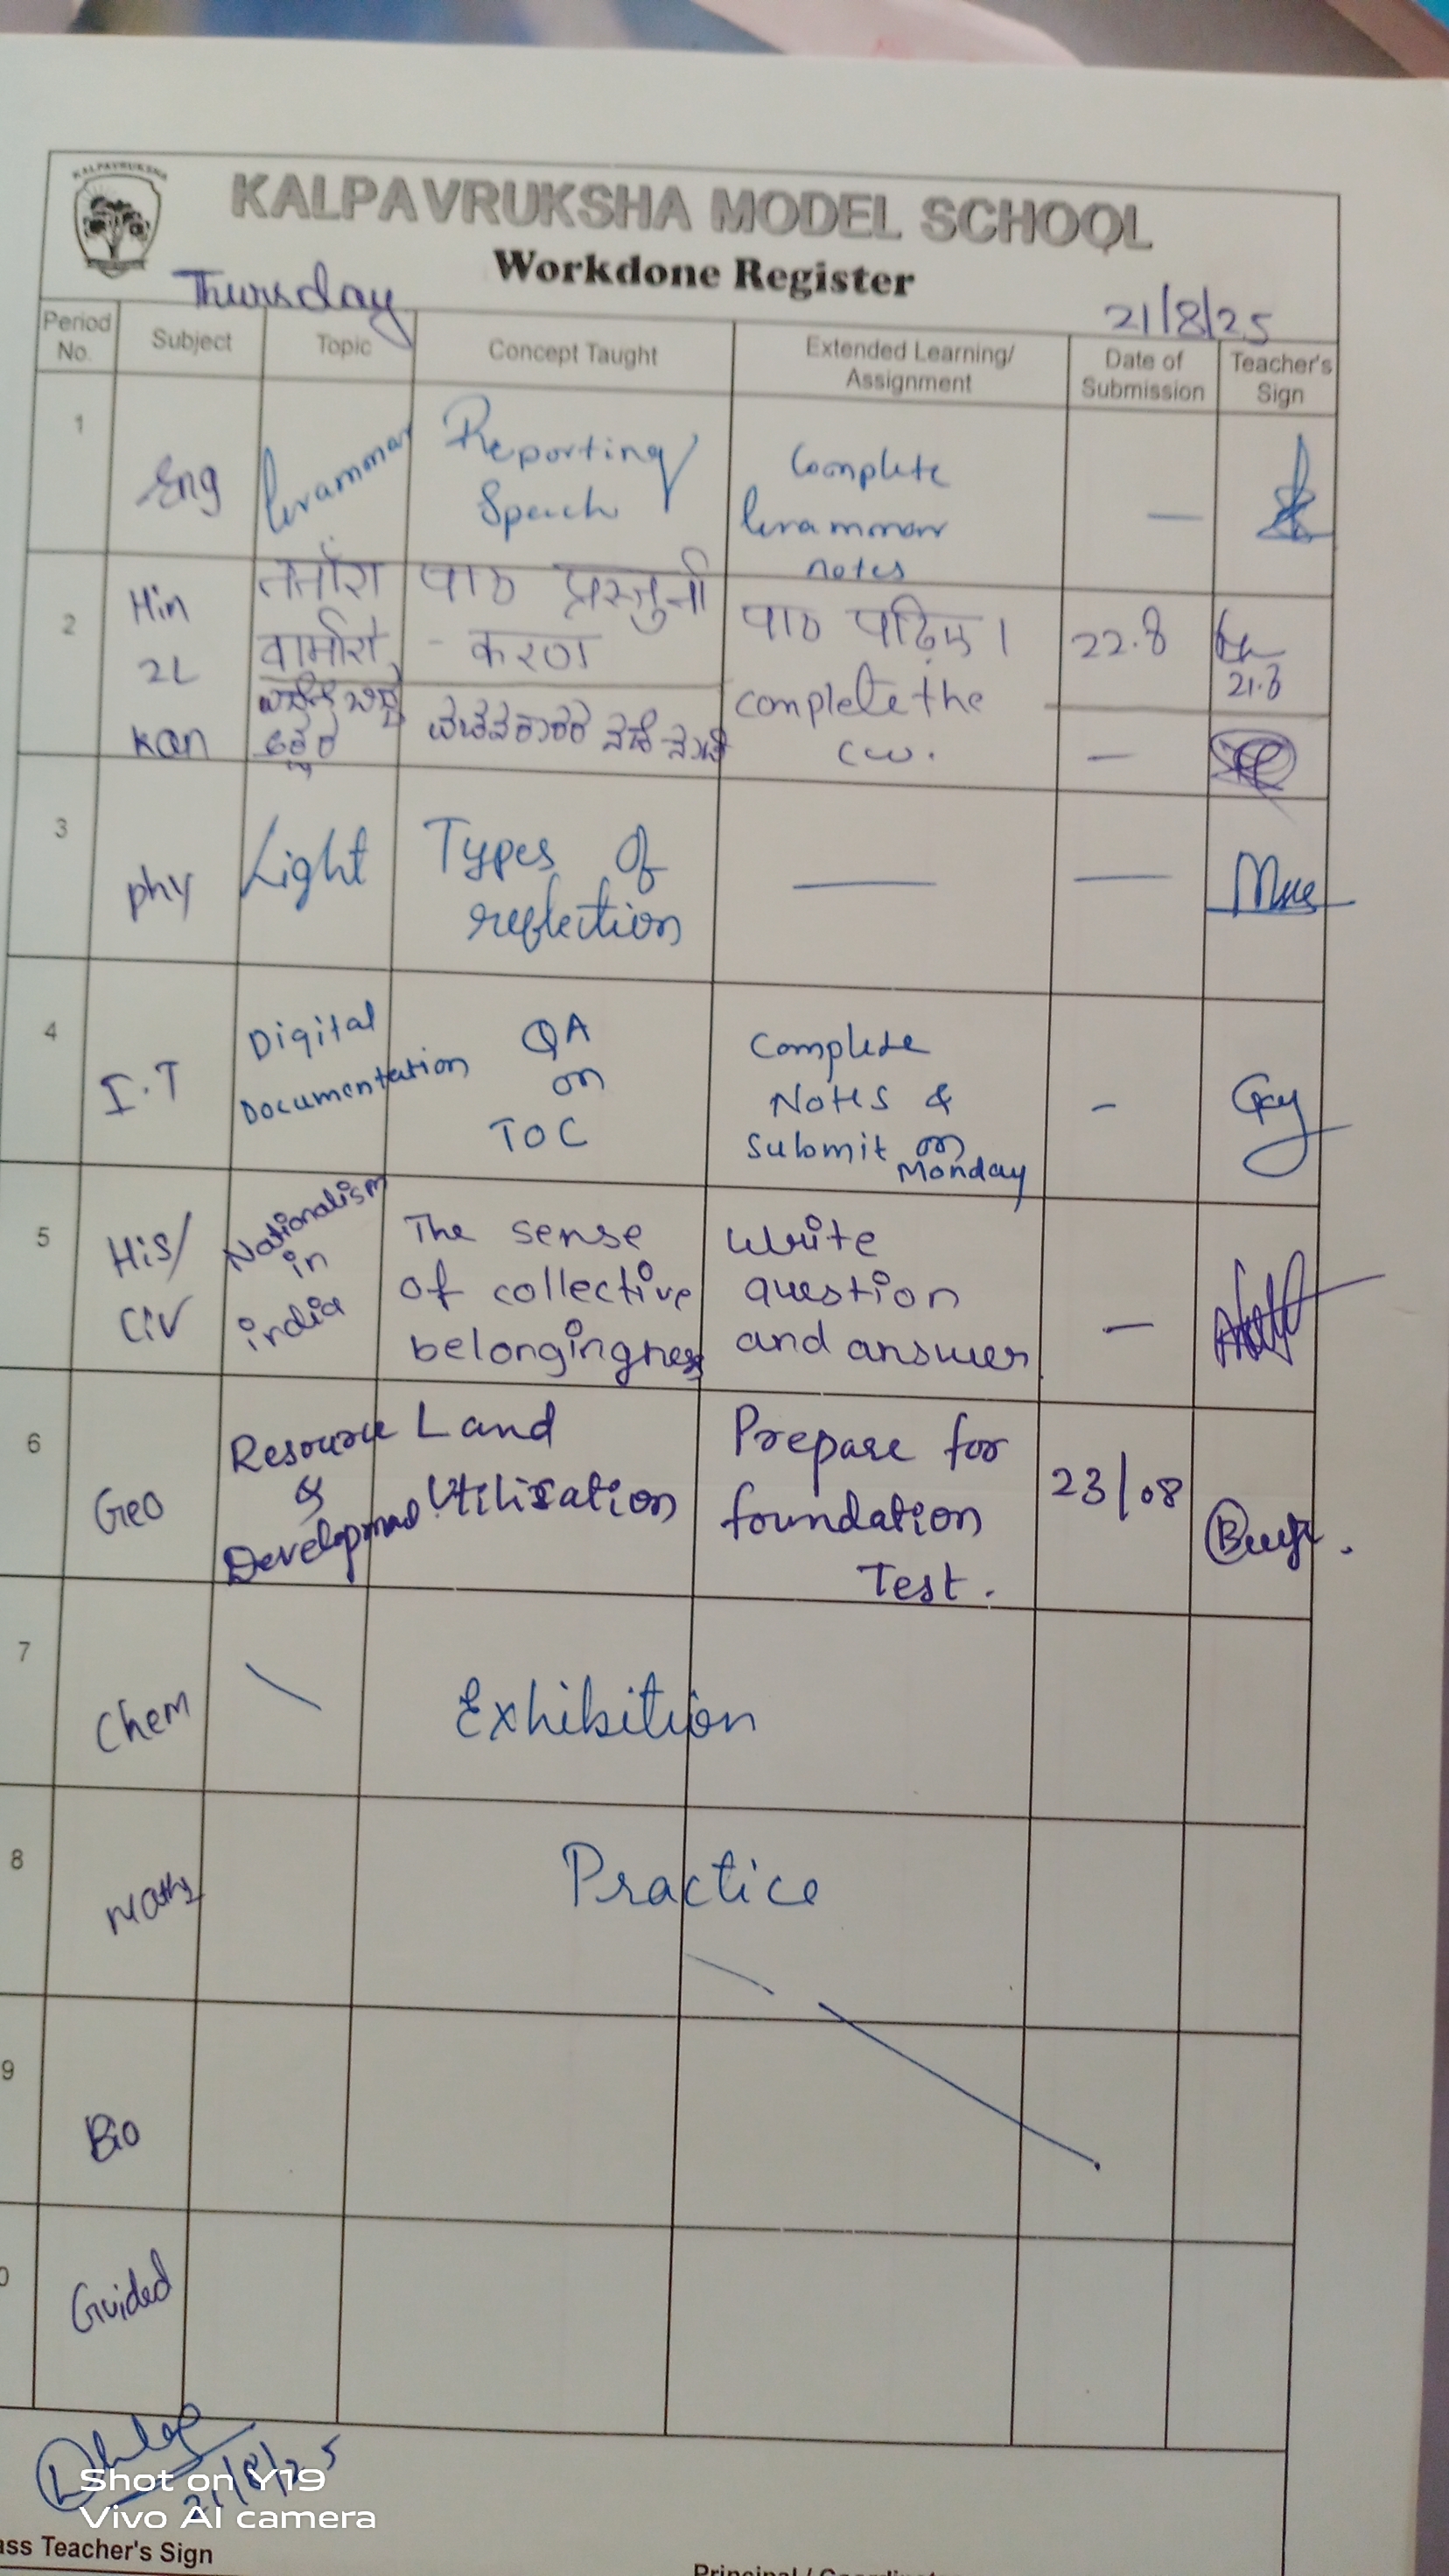 KALPAVRUKSHA
KALPAVRUKSHA MODEL SCHOOL
Workdone Register
Thursday
21/8/25
Period No. Subject Topic Concept Taught Extended Learning/ Assignment Date of Submission Teacher's Sign
1 Eng Grammar Reporting Speech Complete Grammar notes —
2 Hin 2L तताँरा वामीरो पाठ प्रस्तुती - करण पाठ पढ़िए। 22.8 21.8
Kan complete the cw. —
3 phy Light Types of reflection — —
4 I.T Digital Documentation QA on TOC Complete Notes & Submit on Monday -
5 His/ Civ Nationalism in india The sense of collective belongingness Write question and answer —
6 Geo Resource & Development Land Utilization Prepare for foundation Test. 23/08
7 Chem Exhibition
8 Maths Practice
9 Bio
0 Guided
21/8/25
Shot on Y19
Vivo AI camera
ass Teacher's Sign
Principal /